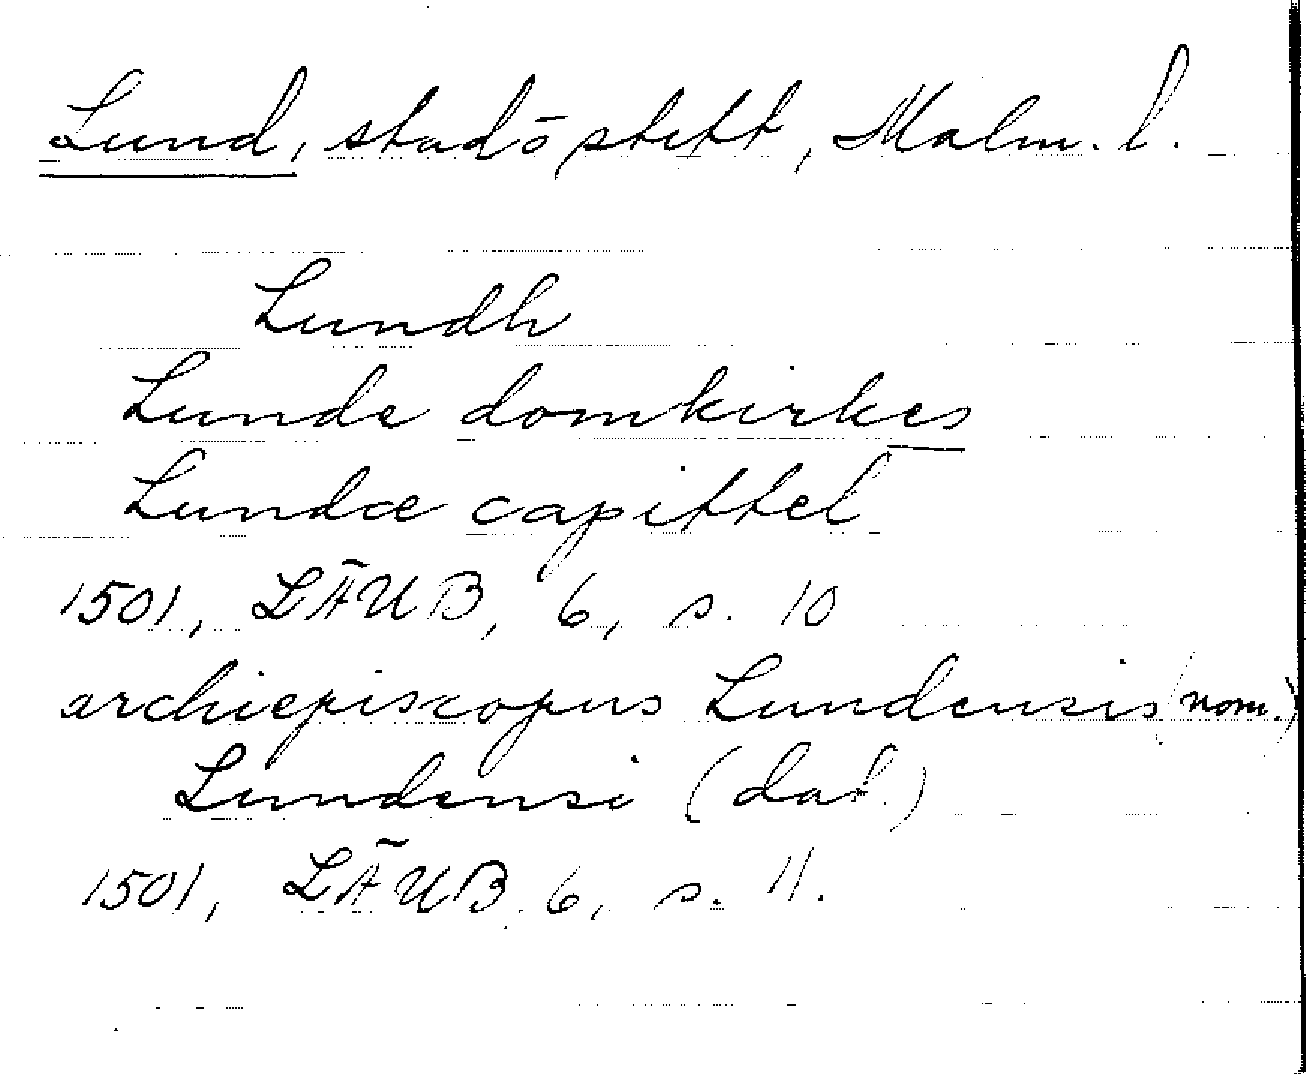 Lund, stad o stift, Malm. l.
Lundh
Lunde domkirkes
Lundæ capittel
1501, LÄUB, 6, s. 10
archiepiscopus Lundensis (nom.)
Lundensi (dat.)
1501, LÄUB 6, s. 11.